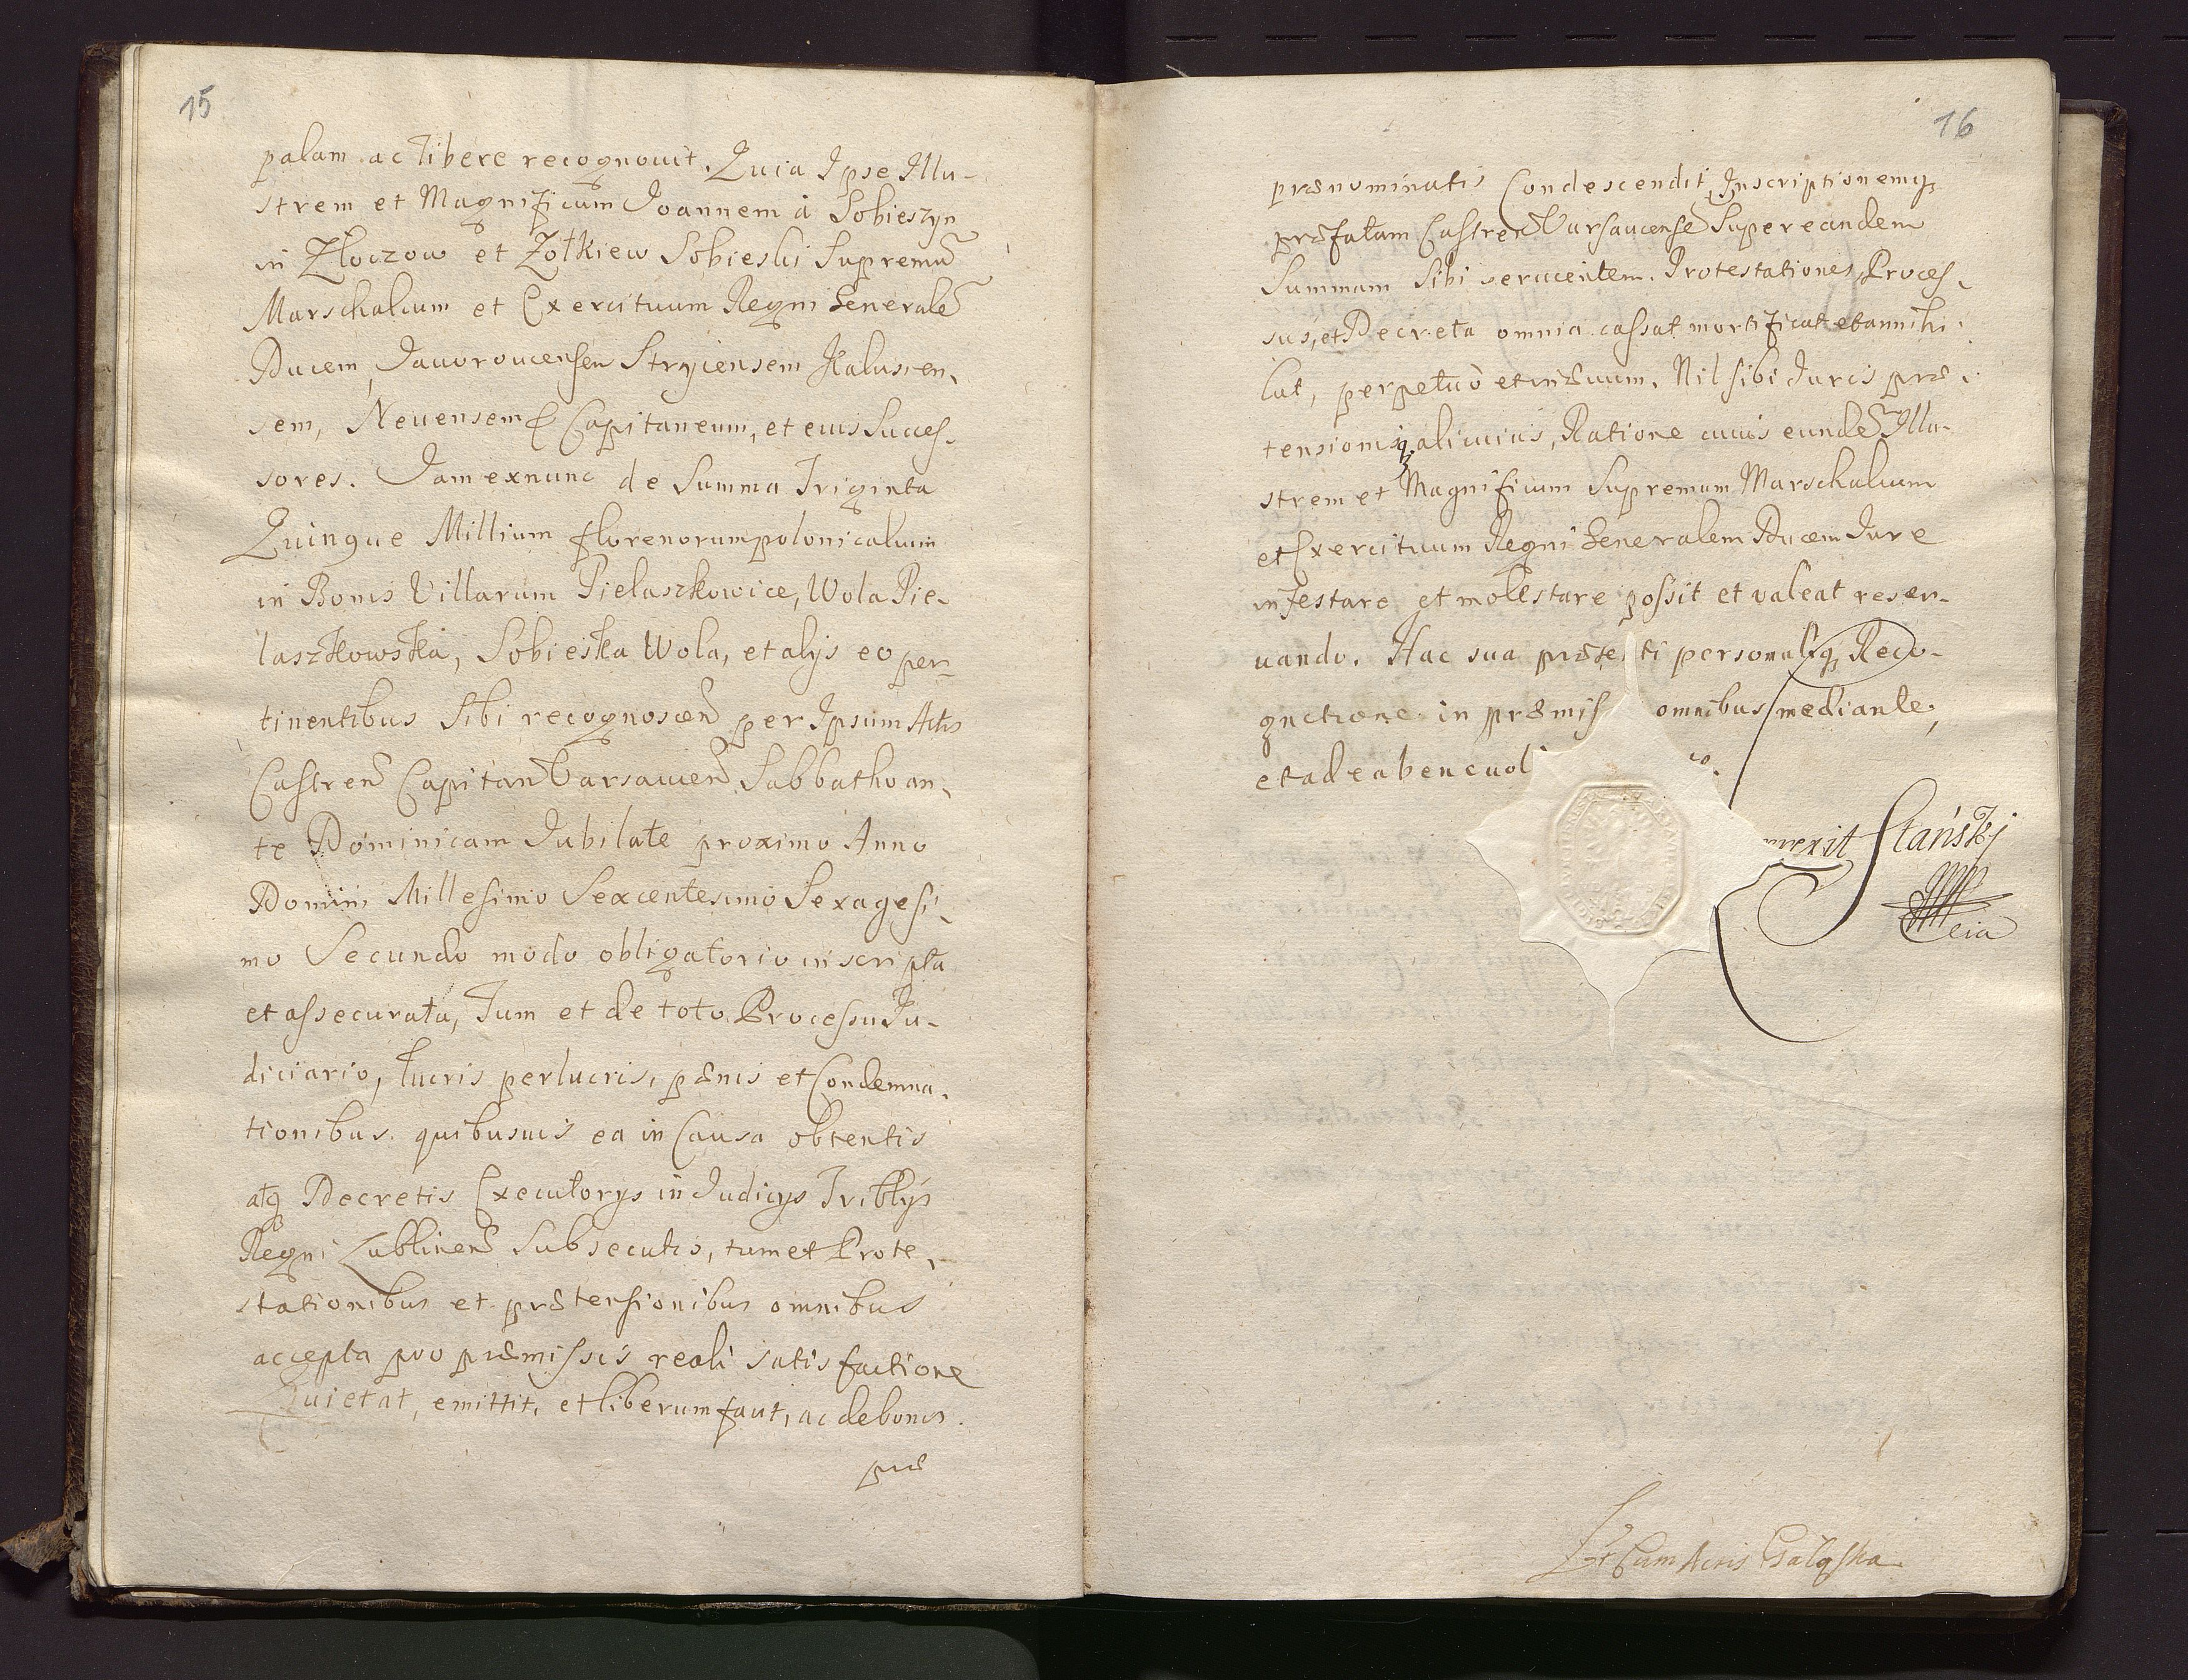 15
palam ac libere recognouit. Quia Ipse Illu-
strem et Magnificum Joannem à Sobieszyn
in Złoczow et Zołkiew Sobieski Supremū
Marschalcum et Exercituum Regni Generalē
Ducem, Jauorouiensen Stryiensem Kalusien,
sem, Neuensemq Capitaneum, et eius Succes-
sores. Jam exnunc de Summa Triginta
Quinque Millium florenorum polonicalium
in Bonis Villarum Pielaszkowice, Wola Pie-
laszkowska, Sobieska Wola, et alys eo per-
tinentibus Sibi recognoscen per Ipsum Actis
Castren Capitan Varsauien Sabbatho an,
te Dominicam Jubilate proximo Anno
Domini Millesimo Sexcentesimo Sexagesi,
mo Secundo modo obligatorio inscripta
et assecurata, Tum et de toto Processu Ju-
diciario, lucris perlucris, pænis et Condemna,
tionibus quibusuis ea in Causa obtentis
atq Decretis Executorys in Judicys Triblys
Regni Lublinen Subsecutis, tum et Prote,
stationibus et prætensionibus omnibus
accepta pro præmissis reali satisfactione
Quietat, emittit, et liberum facit, ac de bonis
præ
16
prænominatis Condescendit, Inscriptionemq
præfatam Castren Varsauiense Super eandem
Summam Sibi seruientem. Protestationes, Proces,
sus, et Decreta omnia cassat mortificat et annihi,
lat, perpetuo et in æuum. Nil sibi Juris præ,
tensionisq alicuius, Ratione cuius eundē Illu-
strem et Magnificum Supremum Marschalcum
et Exercituum Regni Generalem Ducem Jure
infestare et molestare possit et valeat reser-
uando. Hac sua præse ti personaliq Reco-
gnitione in præmis omnibus mediante,
et ad ea beneuol o.
rrexit Stański
Cum Actis